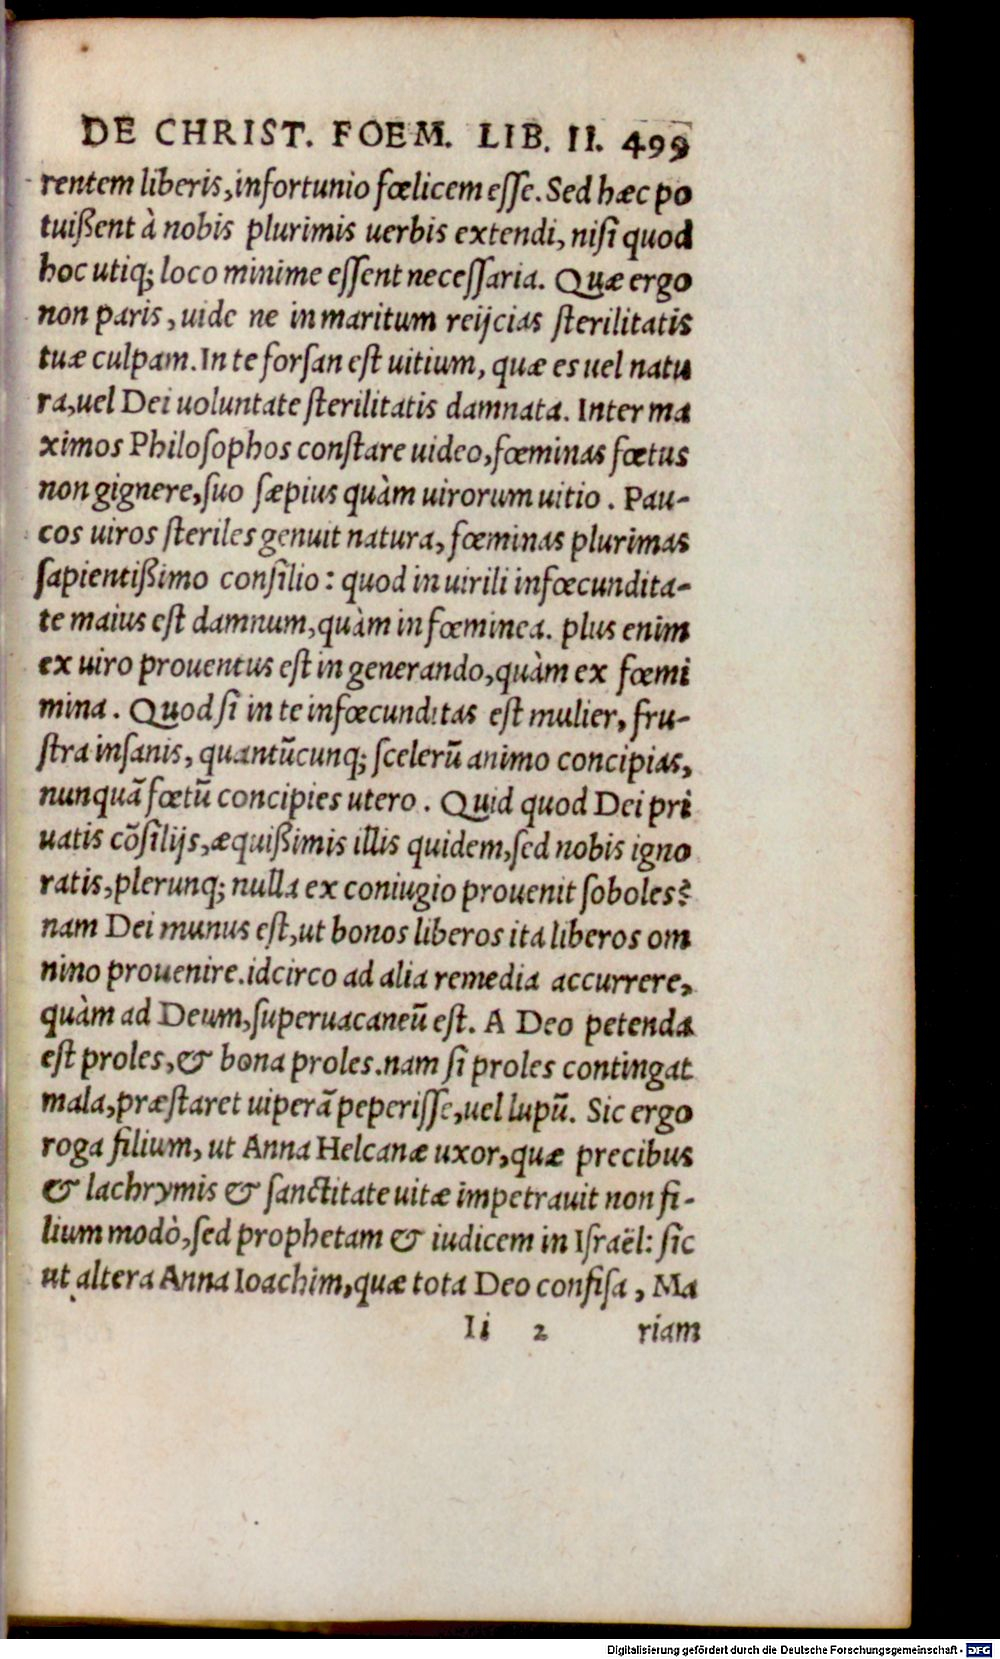 DE CHRIST. FOEM. LIB. II. 499
rentem liberis, infortunio fœlicem eſſe. Sed hæc po
tuißent à nobis plurimis uerbis extendi, niſi quod
hoc utiq; loco minime eſſent neceſſaria. Quæ ergo
non paris, uide ne in maritum reijcias ſterilitatis
tuæ culpam. In te forſan eſt uitium, quæ es uel natu
ra, uel Dei uoluntate ſterilitatis damnata. Inter ma
ximos Philoſophos conſtare uideo, fœminas fœtus
non gignere, ſuo ſæpius quàm uirorum uitio. Pau-
cos uiros ſteriles genuit natura, fœminas plurimas
ſapientißimo conſilio: quod in uirili infœcundita-
te maius eſt damnum, quàm in fœminea. plus enim
ex uiro prouentus eſt in generando, quàm ex fœmi
mina. Quod ſi in te infœcunditas eſt mulier, fru-
ſtra inſanis, quantũcunq; ſcelerũ animo concipias,
nunquã fœtũ concipies utero. Quid quod Dei pri
uatis cõſilijs, æquißimis illis quidem, ſed nobis igno
ratis, plerunq; nulla ex coniugio prouenit ſoboles?
nam Dei munus eſt, ut bonos liberos ita liberos om
nino prouenire. idcirco ad alia remedia accurrere,
quàm ad Deum, ſuperuacaneũ eſt. A Deo petenda
eſt proles, & bona proles. nam ſi proles contingat
mala, præſtaret uiperã peperiſſe, uel lupũ. Sic ergo
roga filium, ut Anna Helcanæ uxor, quæ precibus
& lachrymis & ſanctitate uitæ impetrauit non fi-
lium modò, ſed prophetam & iudicem in Iſraël: ſic
ut altera Anna Ioachim, quæ tota Deo confiſa, Ma
Ii 2 riam
Digitalisierung gefördert durch die Deutsche Forschungsgemeinschaft - DFG